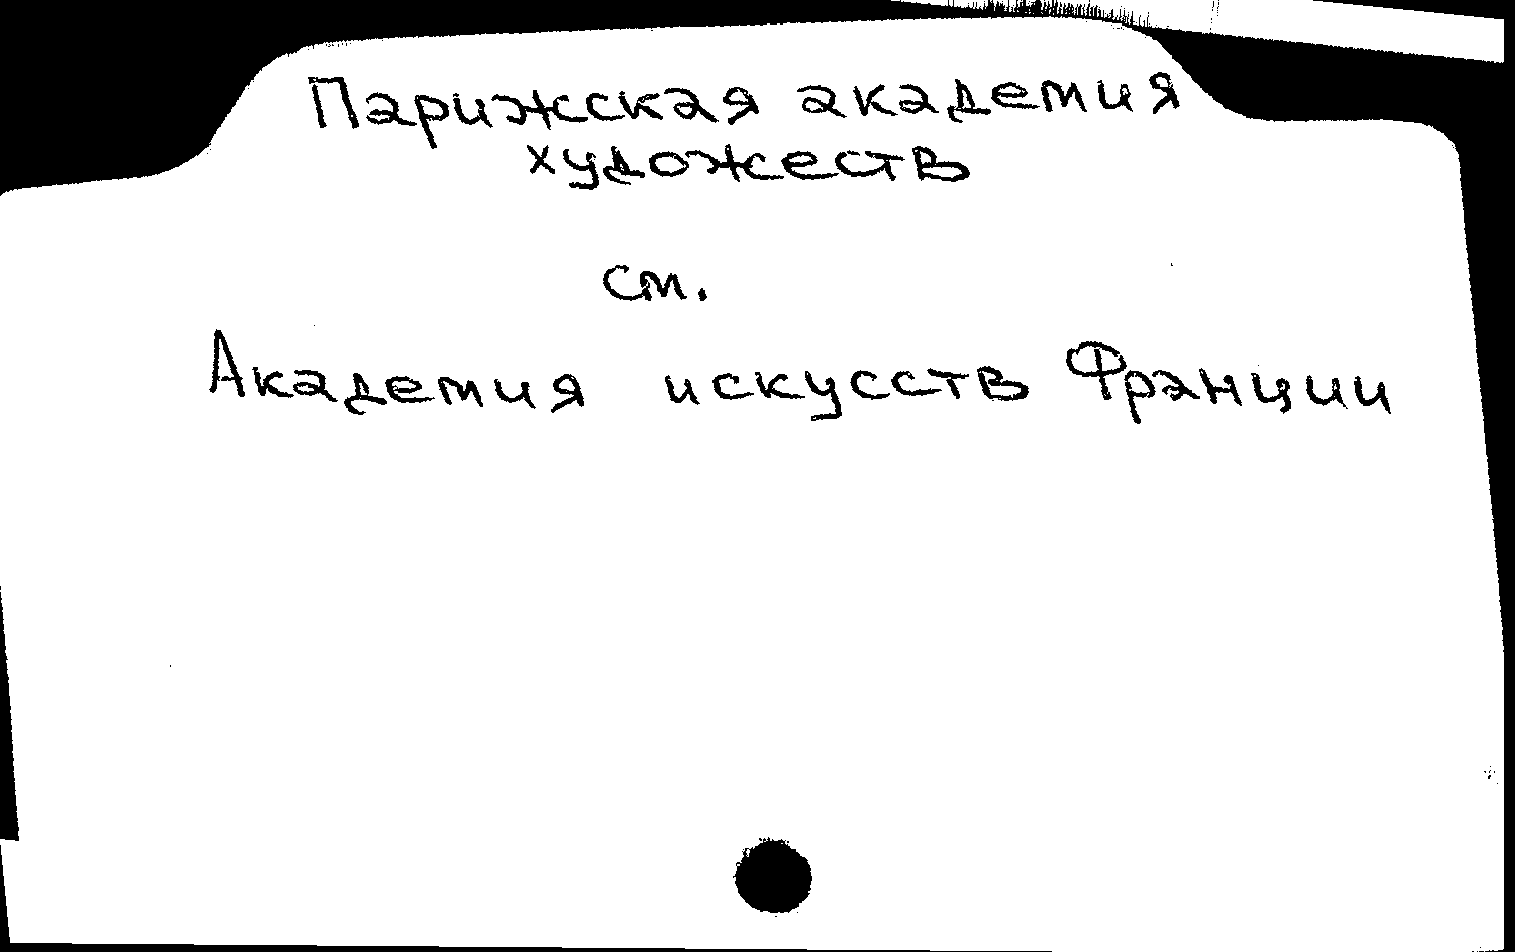 Парижская академия
художеств
см.
Академия искусств Франции